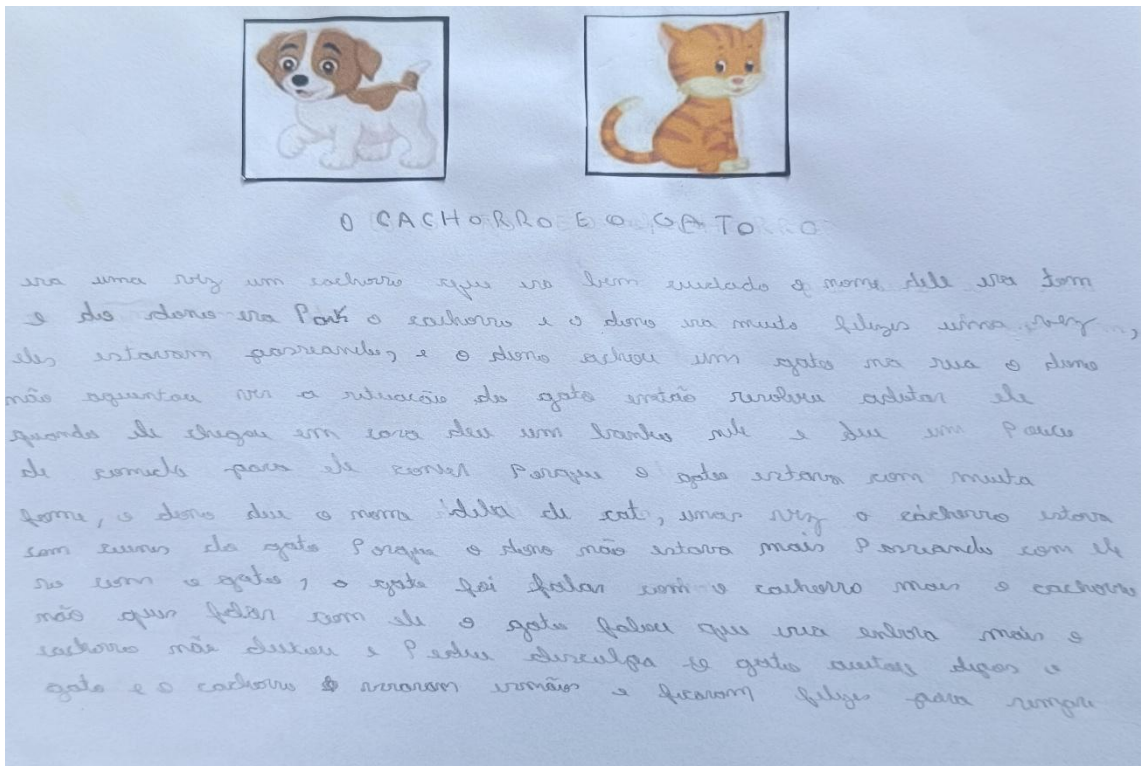 O CACHORRO E O GATO
era uma vez um cachorro que era bem cuidado o nome dele era tom
e do dono era Park o cachorro e o dono era muito felizes uma vez,
eles estavam passeando, e o dono achou um gato na rua o dono
não aguentou ver a situação do gato então resolveu adotar ele
quando ele chegou em casa deu um banho nele e deu um Pouco
de comida para ele comer Porque o gato estava com muita
fome, o dono deu o nome dele de cat, umas vez o cachorro estava
com ciumes do gato Porque o dono não estava mais Passeando com ele
so com o gato, o gato foi falar com o cachorro mais o cachorro
não quis falar com ele o gato falou que iria enbora mais o
cachorro não deixou e Pediu desculpa o gato aceitou dipos o
gato e o cachorro viraram irmãos e ficaram felizes para sempre